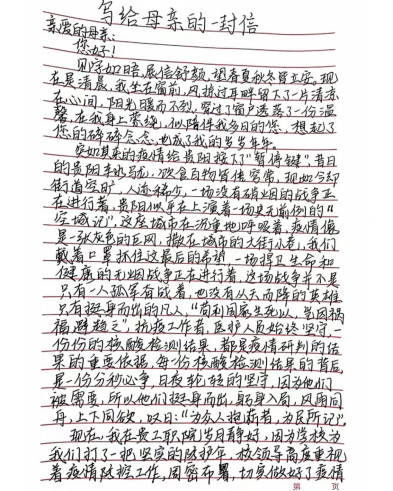 写给母亲的一封信
亲爱的母亲:
您好!
见字如晤,展信舒颜,望着夏秋冬皆立安。现
在是清晨,我坐在窗前,风掠过耳畔留下了一片清凉
在心间,阳光暖而不烈,穿过了窗户透落了一份温
馨,在我身上萦绕,似陪伴我多日的您,想起了
您的碎碎念念,也成了我的岁岁年年。
突如其来的疫情给贵阳按下了“暂停键”,昔日
的贵阳车水马龙,饮食百物皆佳宏常,现如今却
街道空旷,人迹稀少,一场没有硝烟的战争正
在进行着,贵阳似乎在上演着一场史无前例的“
空城记”,这座城市在沉重地呼吸着,疫情像
是一张灰色的巨网,撒在城市的大街小巷,我们
戴着口罩抓住这最后的希望,一场捍卫生命和
健康的无烟战争正在进行着,这场战争并不是
只有一人孤军奋战着,也没有从天而降的英雄
只有挺身而出的凡人,“苟利国家生死以,岂因祸
福避趋之”,抗疫工作者,医护人员始终坚守,一
份份的核酸检测结果,都是疫情研判的结
果的重要依据,每一份核酸检测结果的背后,
是一份分秒必争,日夜轮转的坚守,因为他们
被需要,所以他们挺身而出,躬身入局,风雨同
舟,上下同欲,叹曰:“为众人抱薪者,为民所记”。
现在,我在贵工职院岁月静好,因为学校为
我们打了一把坚实的保护伞,校领导高度重视
着疫情防控工作,周密布署,切实做好了疫情
第 页